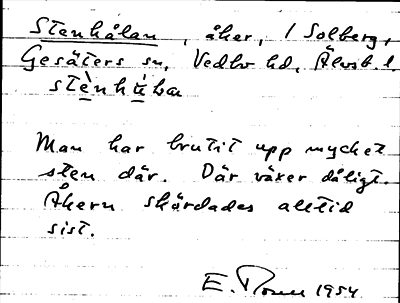 Stenhålan, åker, i Solberg,
Gesäters sn, Vedbo hd, Älvsb. l.
stènhùba
Man har brutit upp mycket
sten där. Där växer dåligt.
Åkern skördades alltid
sist.
E. 1954